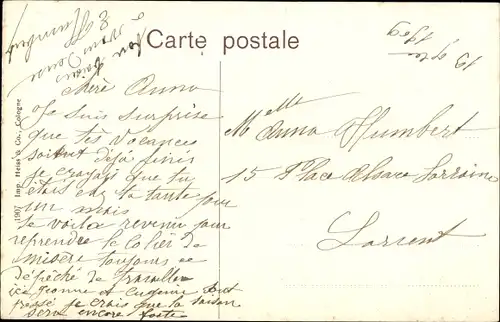 Carte postale
19 7bre
1909
Chère Anna
Je suis surprise
que tes vacances
soient déjà finis
je croyais que tu
étais en ta tante pour
un mois
te voila revenu pour
reprendre le colier de
misère toujours
dépêché de travailler
ici Jeanne et Eugénie sont
pressé je crois que la saison
sera encore forte
Melle
Anna Humbert
15 Place Alsace Lorraine
Lorient
E Humbert
1907 Imp. Heiss & Co., Cologne